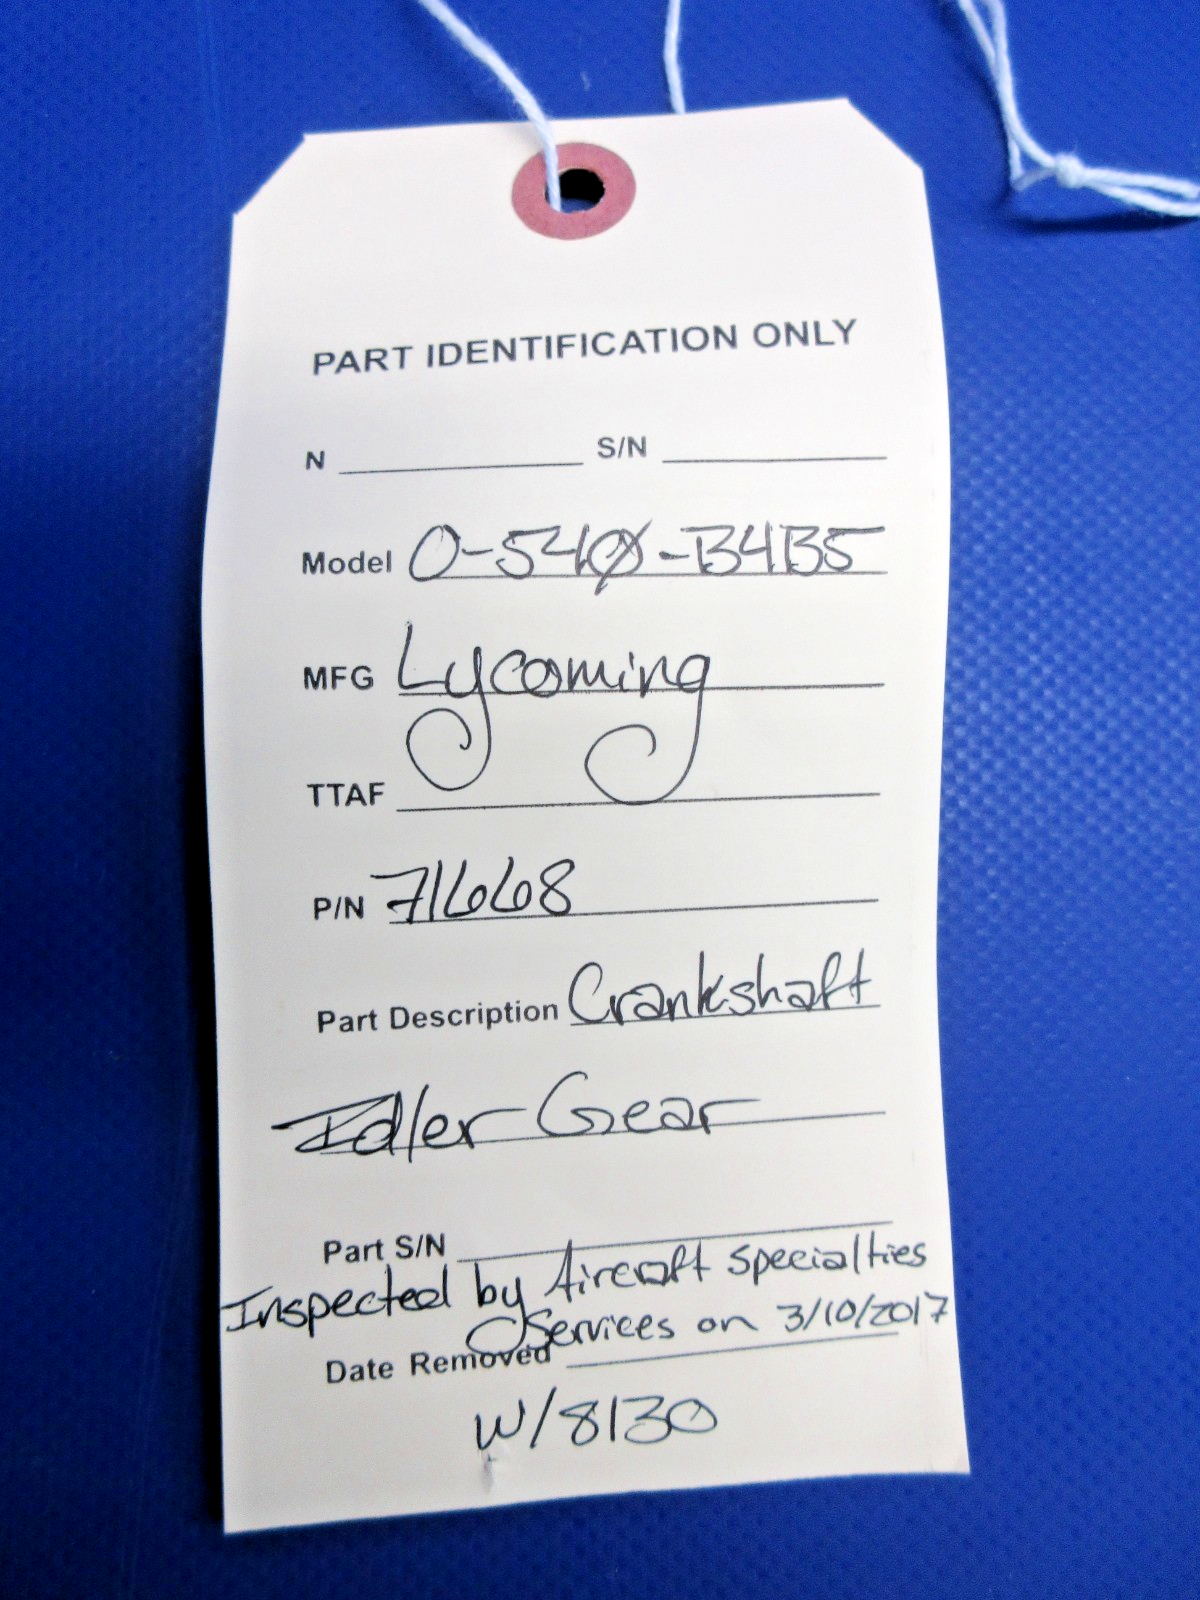 PART IDENTIFICATION ONLY
N S/N
Model O-540-B4B5
MFG Lycoming
TTAF
P/N 71668
Part Description Crankshaft
Idler Gear
Part S/N
Inspected by Aircraft Specialties
Services on 3/10/2017
Date Removed
W/8130